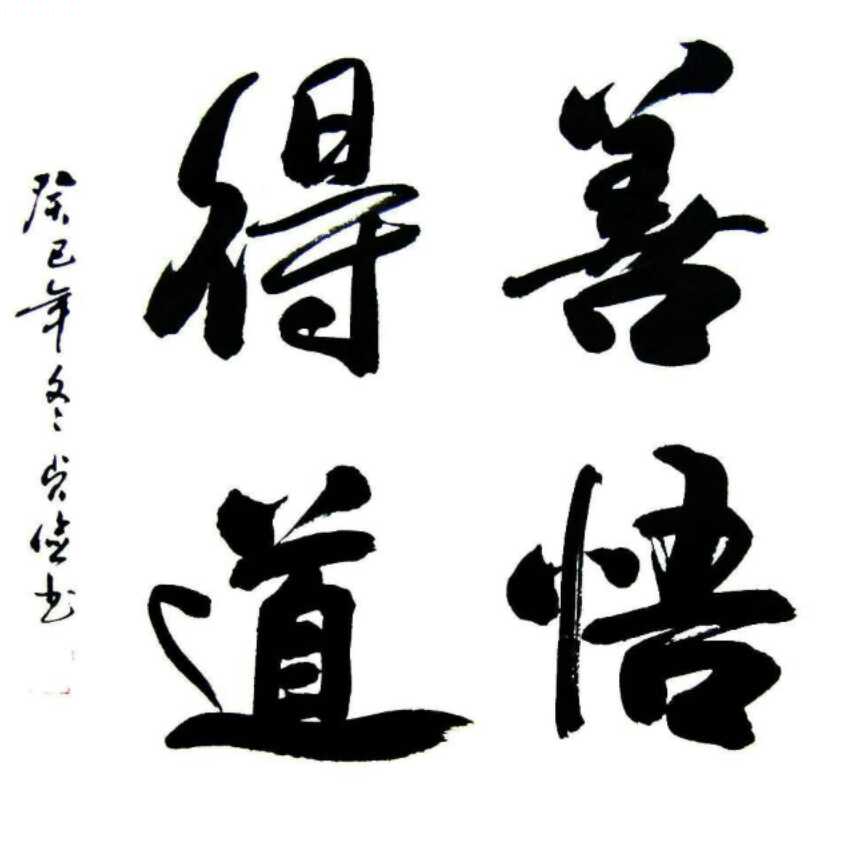 善悟
得道
癸巳年冬尚俭书